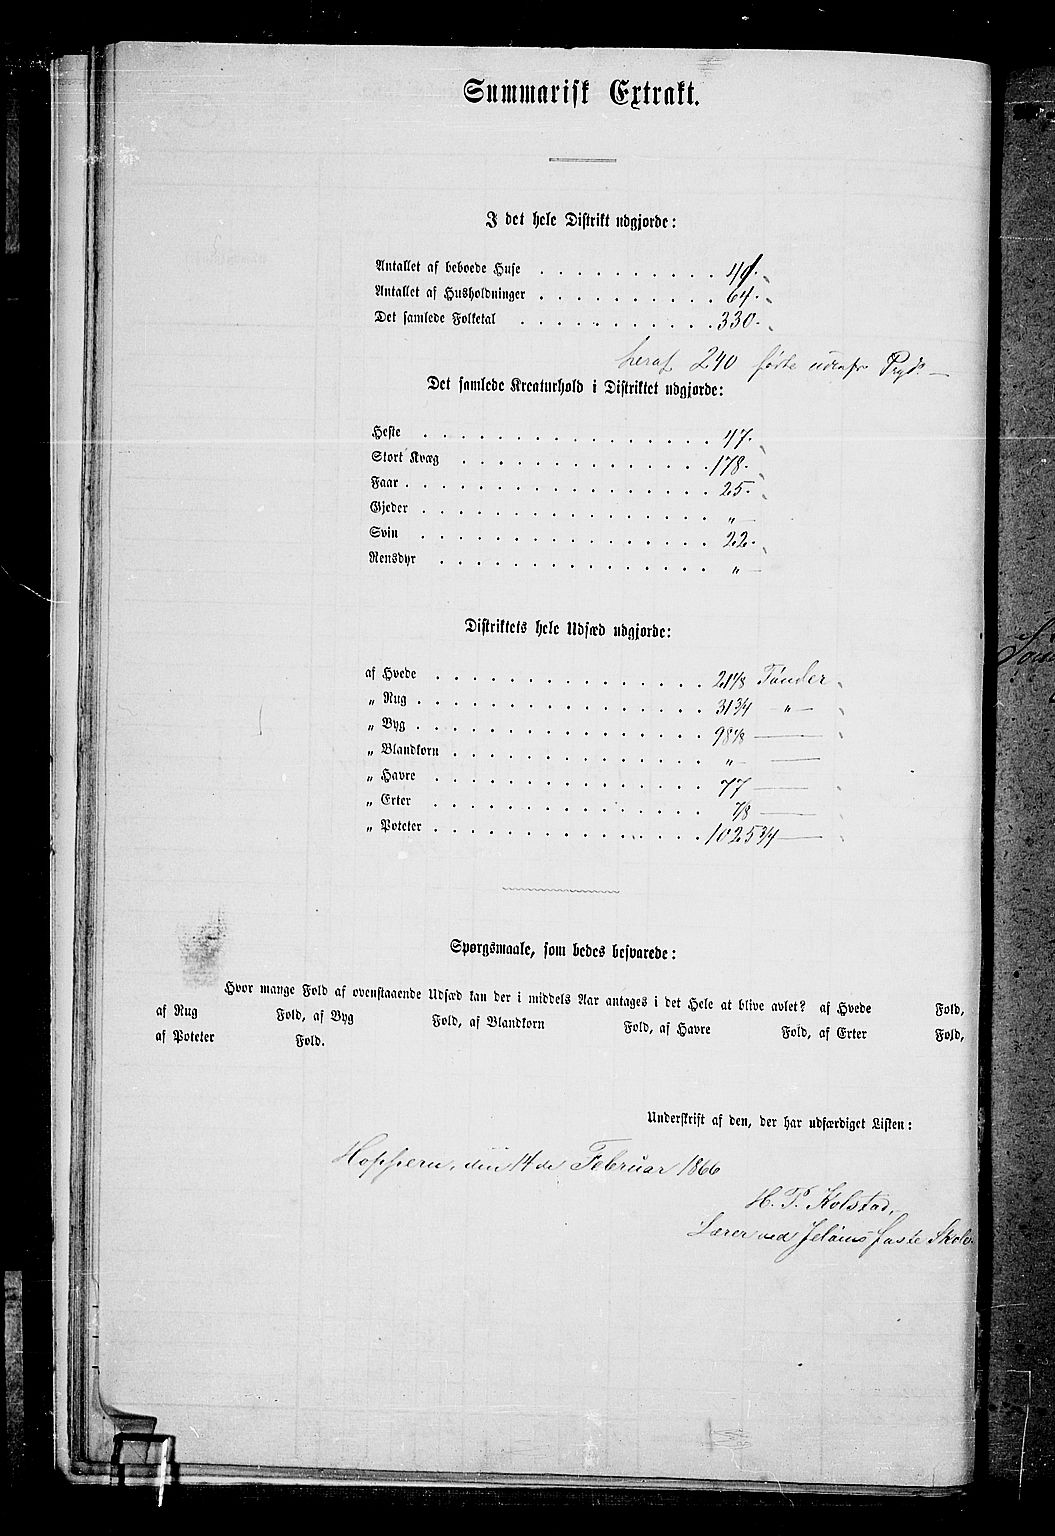 Summarisk Extrakt.
I det hele Distrikt udgjorde:
Antallet af beboede Huse . . . . . . . . . . 41.
Antallet af Husholdninger . . . . . . . . . . 64.
Det samlede Folketal . . . . . . . . . . . 330.
heraf 240 fødte udenfor
Det samlede Kreaturhold i Distriktet udgjorde:
Heste . . . . . . . . . . . . . . . . 47.
Stort Kvæg . . . . . . . . . . . . . . 178.
Faar . . . . . . . . . . . . . . . . . 25.
Gjeder . . . . . . . . . . . . . . . . „ —
Svin . . . . . . . . . . . . . . . . 22.
Rensdyr . . . . . . . . . . . . . . . „ —
Distriktets hele Udsæd udgjorde:
af Hvede . . . . . . . . . . . . . . . 21/8 Tønder
„ Rug . . . . . . . . . . . . . . . . 31 3/4 — „ —
„ Byg . . . . . . . . . . . . . . . . 98 1/8 ——
„ Blandkorn . . . . . . . . . . . . . . „ — ——
„ Havre . . . . . . . . . . . . . . . 77 ——
„ Erter . . . . . . . . . . . . . . . 7/8 ——
„ Poteter . . . . . . . . . . . . . . . 1025 3/4 ——
Spørgsmaale, som bedes besvarede:
Hvor mange Fold af ovenstaaende Udsæd kan der i middels Aar antages i det Hele at blive avlet? af Hvede Fold,
af Rug Fold, af Byg Fold, af Blandkorn Fold, af Havre Fold, af Erter Fold,
af Poteter Fold.
Underskrift af den, der har udfærdiget Listen:
Hoppern, den 14de Februar 1866
H. P. Kolstad,
Lærer ved Jeløens faste Skole.